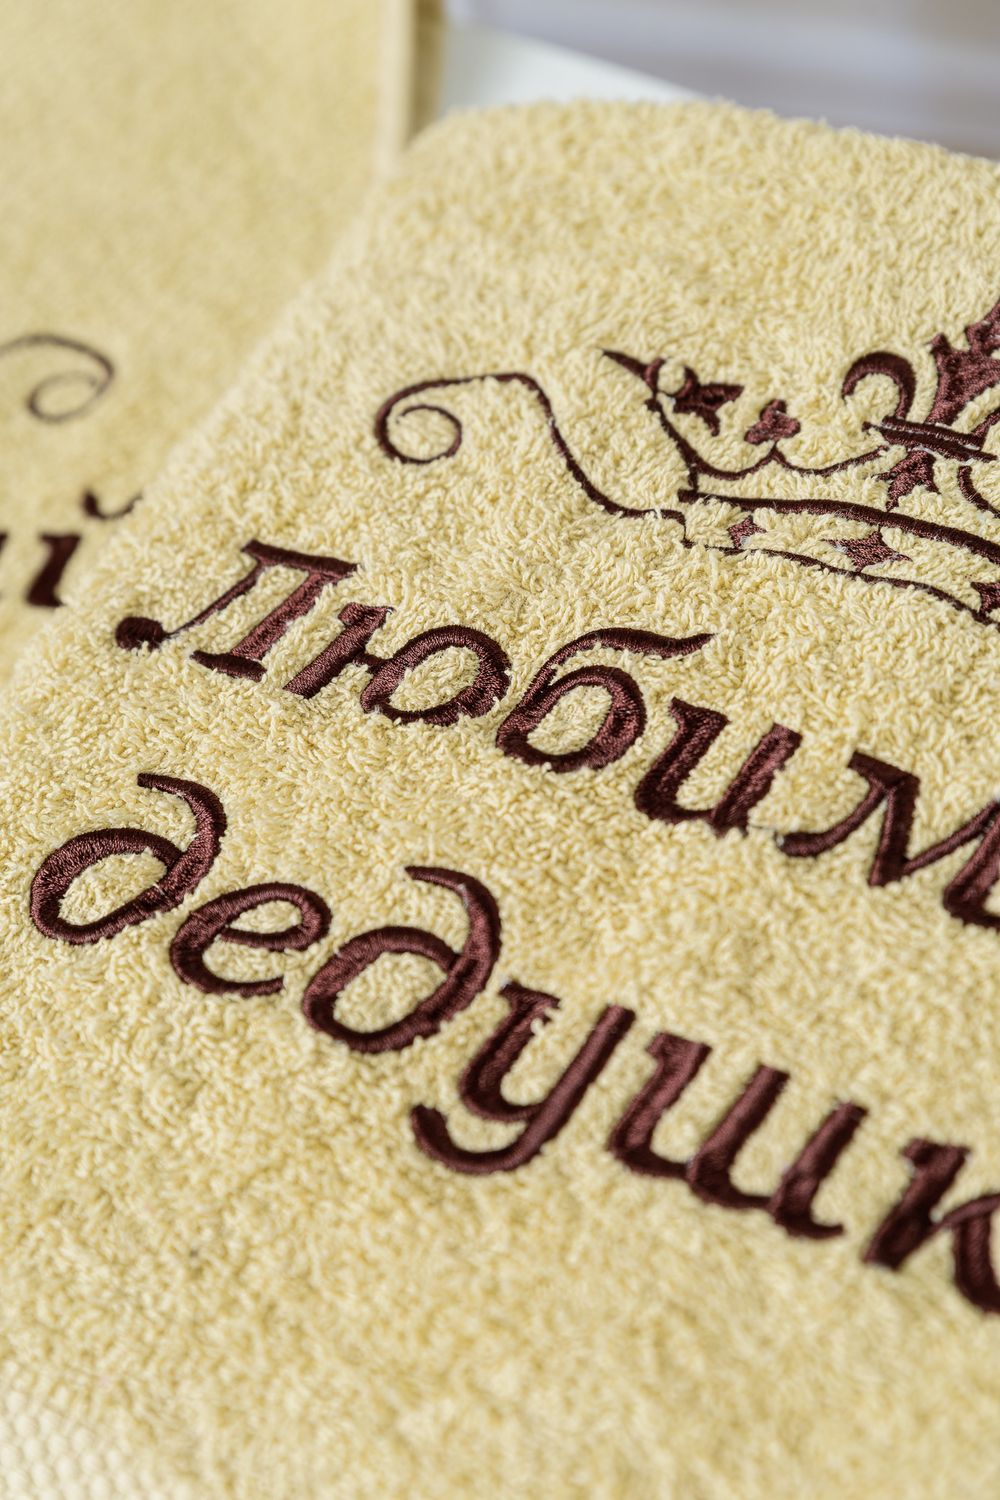 Любим
дедушк
й